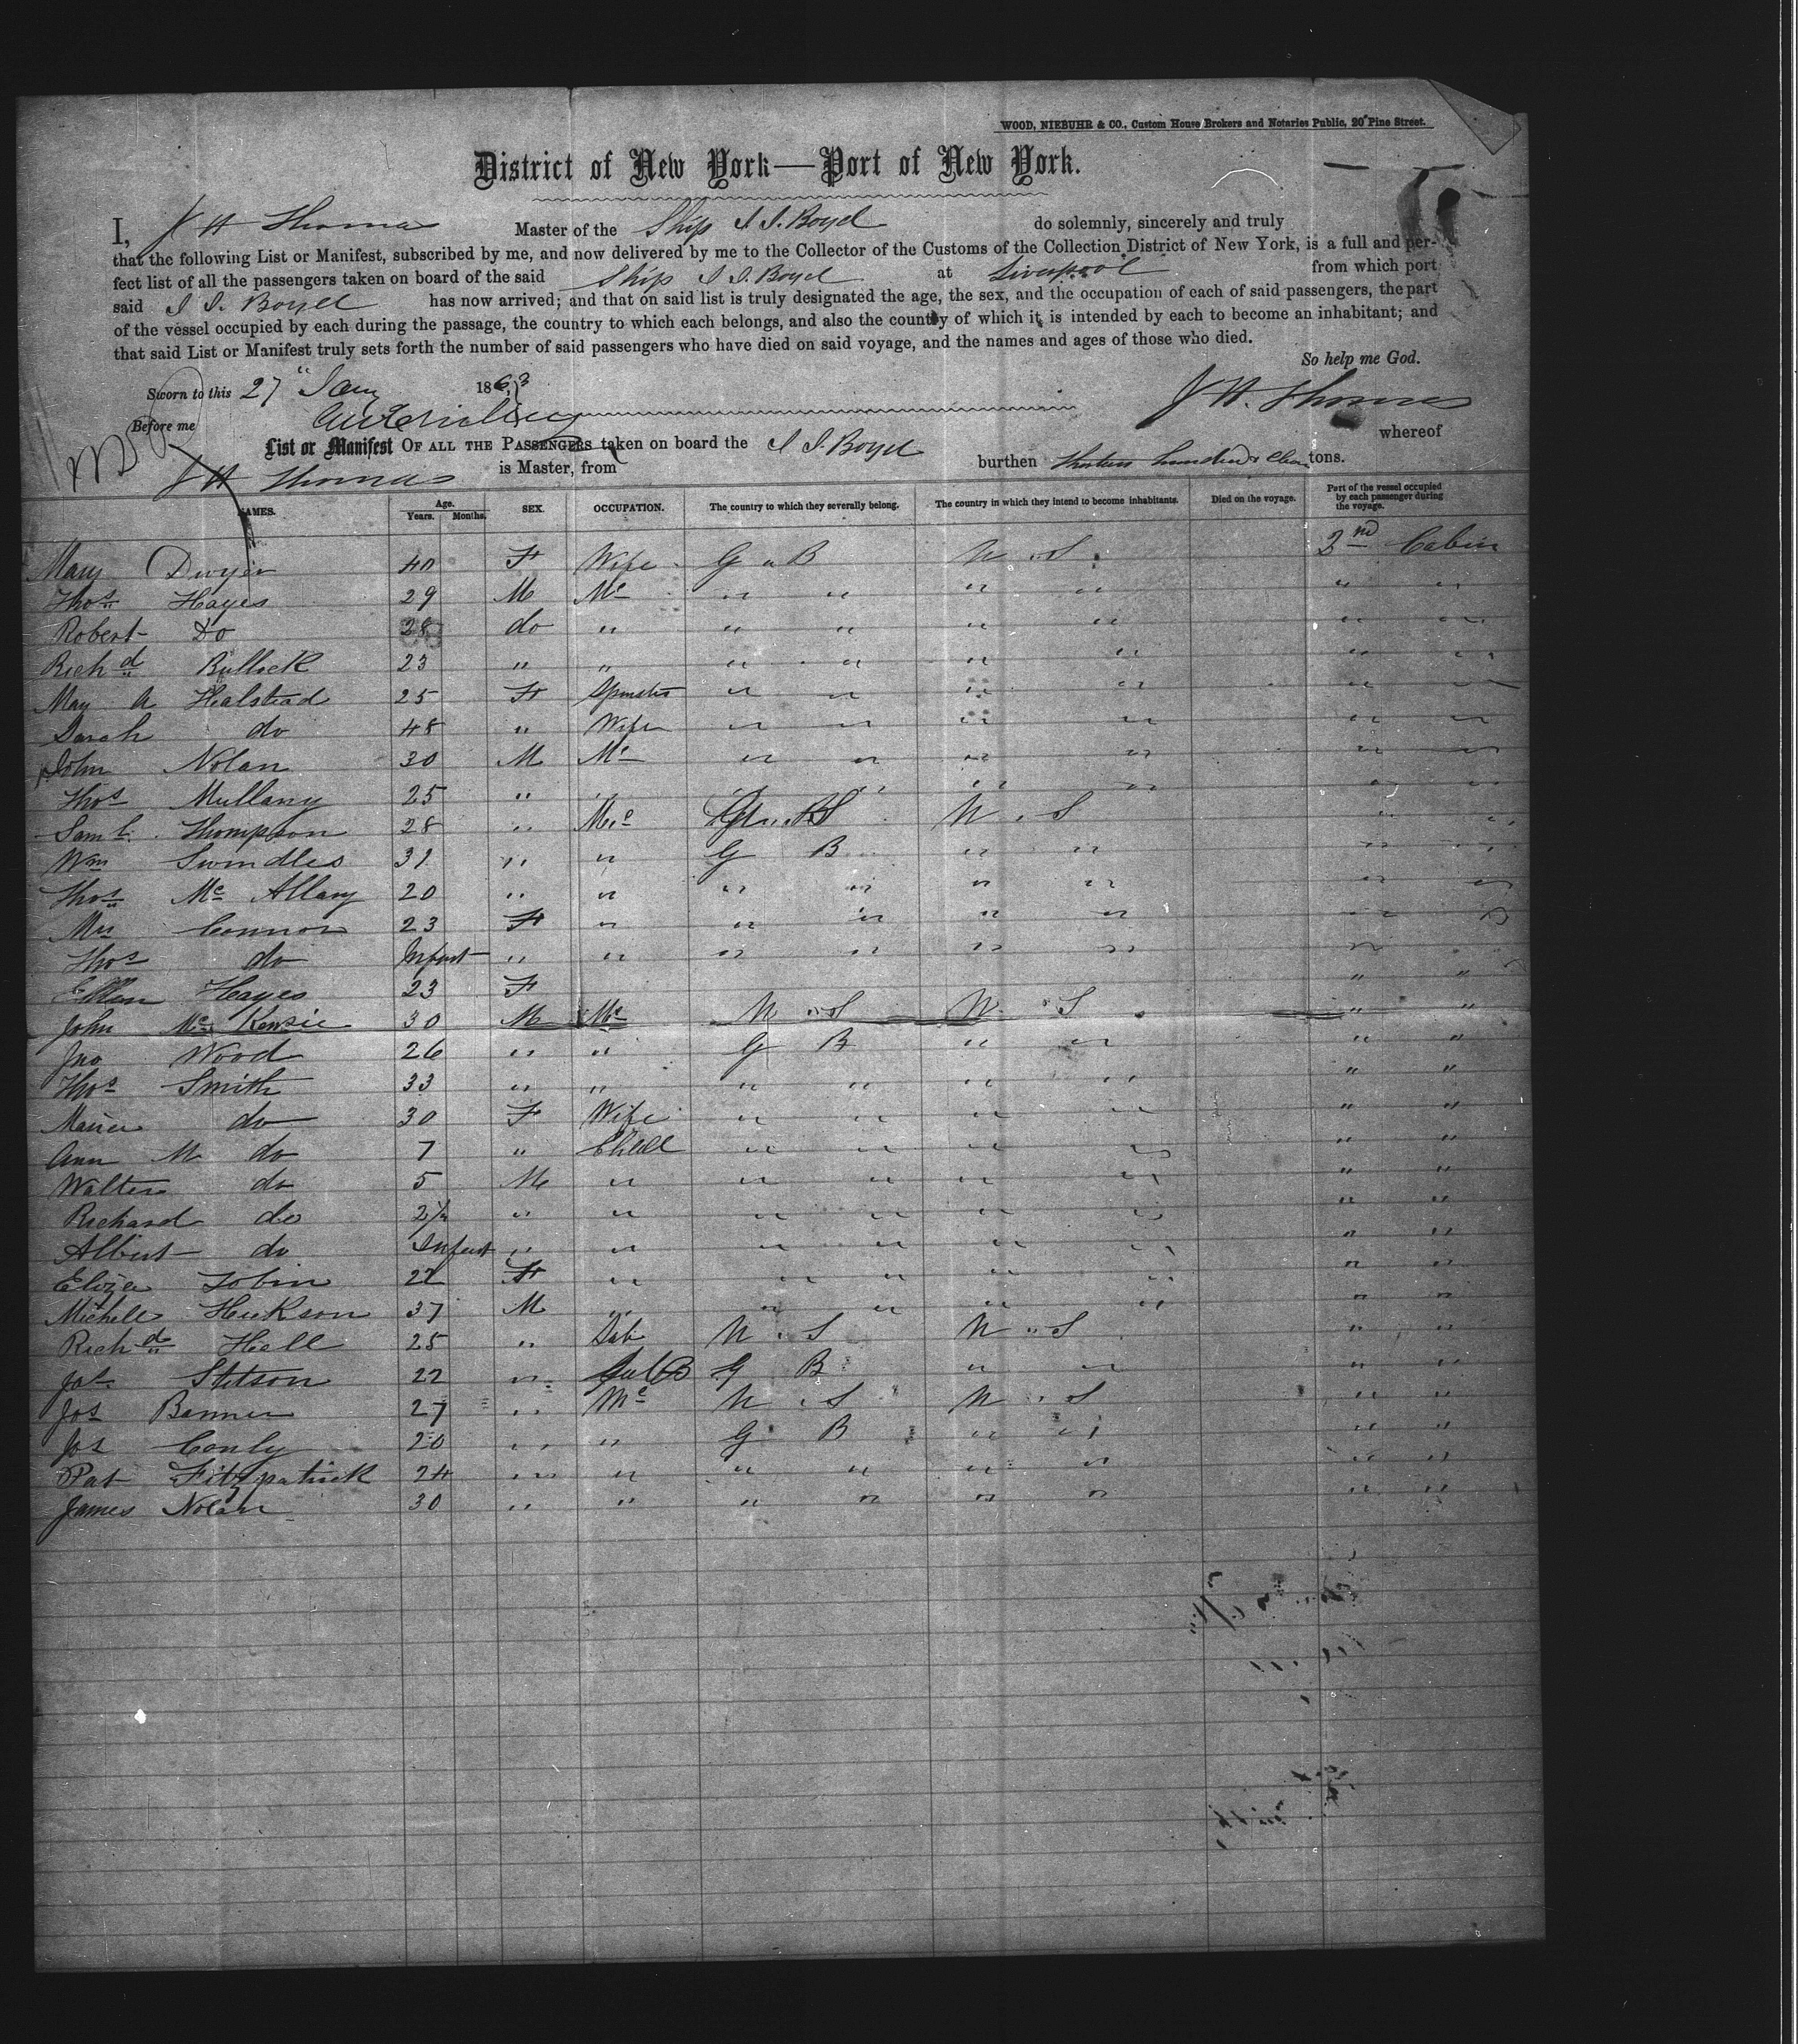 WOOD, NIEBUHR & CO., Custom House Brokers and Notaries Public, 20 Pine Street.
District of New York—Port of New York.
I, J H Thomas Master of the Ship I. I. Boyd do solemnly, sincerely and truly
that the following List or Manifest, subscribed by me, and now delivered by me to the Collector of the Customs of the Collection District of New York, is a full and per-
fect list of all the passengers taken on board of the said Ship I. I. Boyd at Liverpool from which port
said I. I. Boyd has now arrived; and that on said list is truly designated the age, the sex, and the occupation of each of said passengers, the part
of the vessel occupied by each during the passage, the country to which each belongs, and also the country of which it is intended by each to become an inhabitant; and
that said List or Manifest truly sets forth the number of said passengers who have died on said voyage, and the names and ages of those who died.
So help me God.
Sworn to this 27" Jany 1863
J H. Thomas
Before me
List or Manifest OF ALL THE PASSENGERS taken on board the I. I. Boyd whereof
J H Thomas is Master, from burthen thirteen hundred tons.
NAMES. Age. Years. Months. SEX. OCCUPATION. The country to which they severally belong. The country in which they intend to become inhabitants. Died on the voyage. Part of the vessel occupied by each passenger during the voyage.
Mary Dwyer 40 F Wife G " B U " S 2nd Cabin
Thos Hayes 29 M Mc " " " " " "
Robert Do 28 do " " " " " " "
Richd Bullock 23 " " " " " " " "
May A Halstead 25 F Spinster " " " " " "
Sarah do 48 " Wife " " " " " "
John Nolan 30 M Mc " " " " " "
Thos Mullany 25 " " " " " " " "
Saml Thompson 28 " Mc U " S " "
Wm Swindles 31 " " G B " " " "
Thos Mc Allary 20 " " " " " " " "
Mrs Connor 23 F " " " " " " "
Thos do Infant " " " " " " " "
Ellen Hayes 23 F " "
John Mc Kensie 30 M Mc U " S U " S " "
Jno Wood 26 " " G B " " " "
Thos Smith 33 " " " " " " " "
do 30 F Wife " " " " " "
Ann M do 7 " Child " " " " " "
Walter do 5 M " " " " " " "
Richard do 2½ " " " " " " " "
Albert do Infant " " " " " " " "
Eliza Tobin 22 F " " " " " " "
Michell Hickson 37 M " " " " " " "
Richd Hall 25 " Lab U " S U " S " "
Jas Stetson 22 " G B " " " "
Jos Banner 27 " Mc U " S U " S " "
Jos Conly 20 " " G B " " " "
Pat Fitzpatrick 24 " " " " " " " "
James Nolan 30 " " " " " " " "